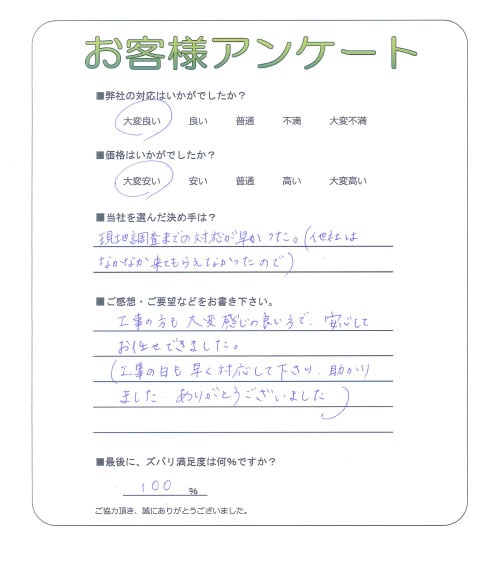 お客様アンケート
■弊社の対応はいかがでしたか？
大変良い 良い 普通 不満 大変不満
■価格はいかがでしたか？
大変安い 安い 普通 高い 大変高い
■当社を選んだ決め手は？
現地調査までの対応が早かった。(他社は
なかなか来てもらえなかったので)
■ご感想・ご要望などをお書き下さい。
工事の方も大変感じの良い方で、安心して
お任せできました。
(工事の日も早く対応して下さり、助かり
ました。ありがとうございました)
■最後に、ズバリ満足度は何%ですか？
100 %
ご協力頂き、誠にありがとうございました。